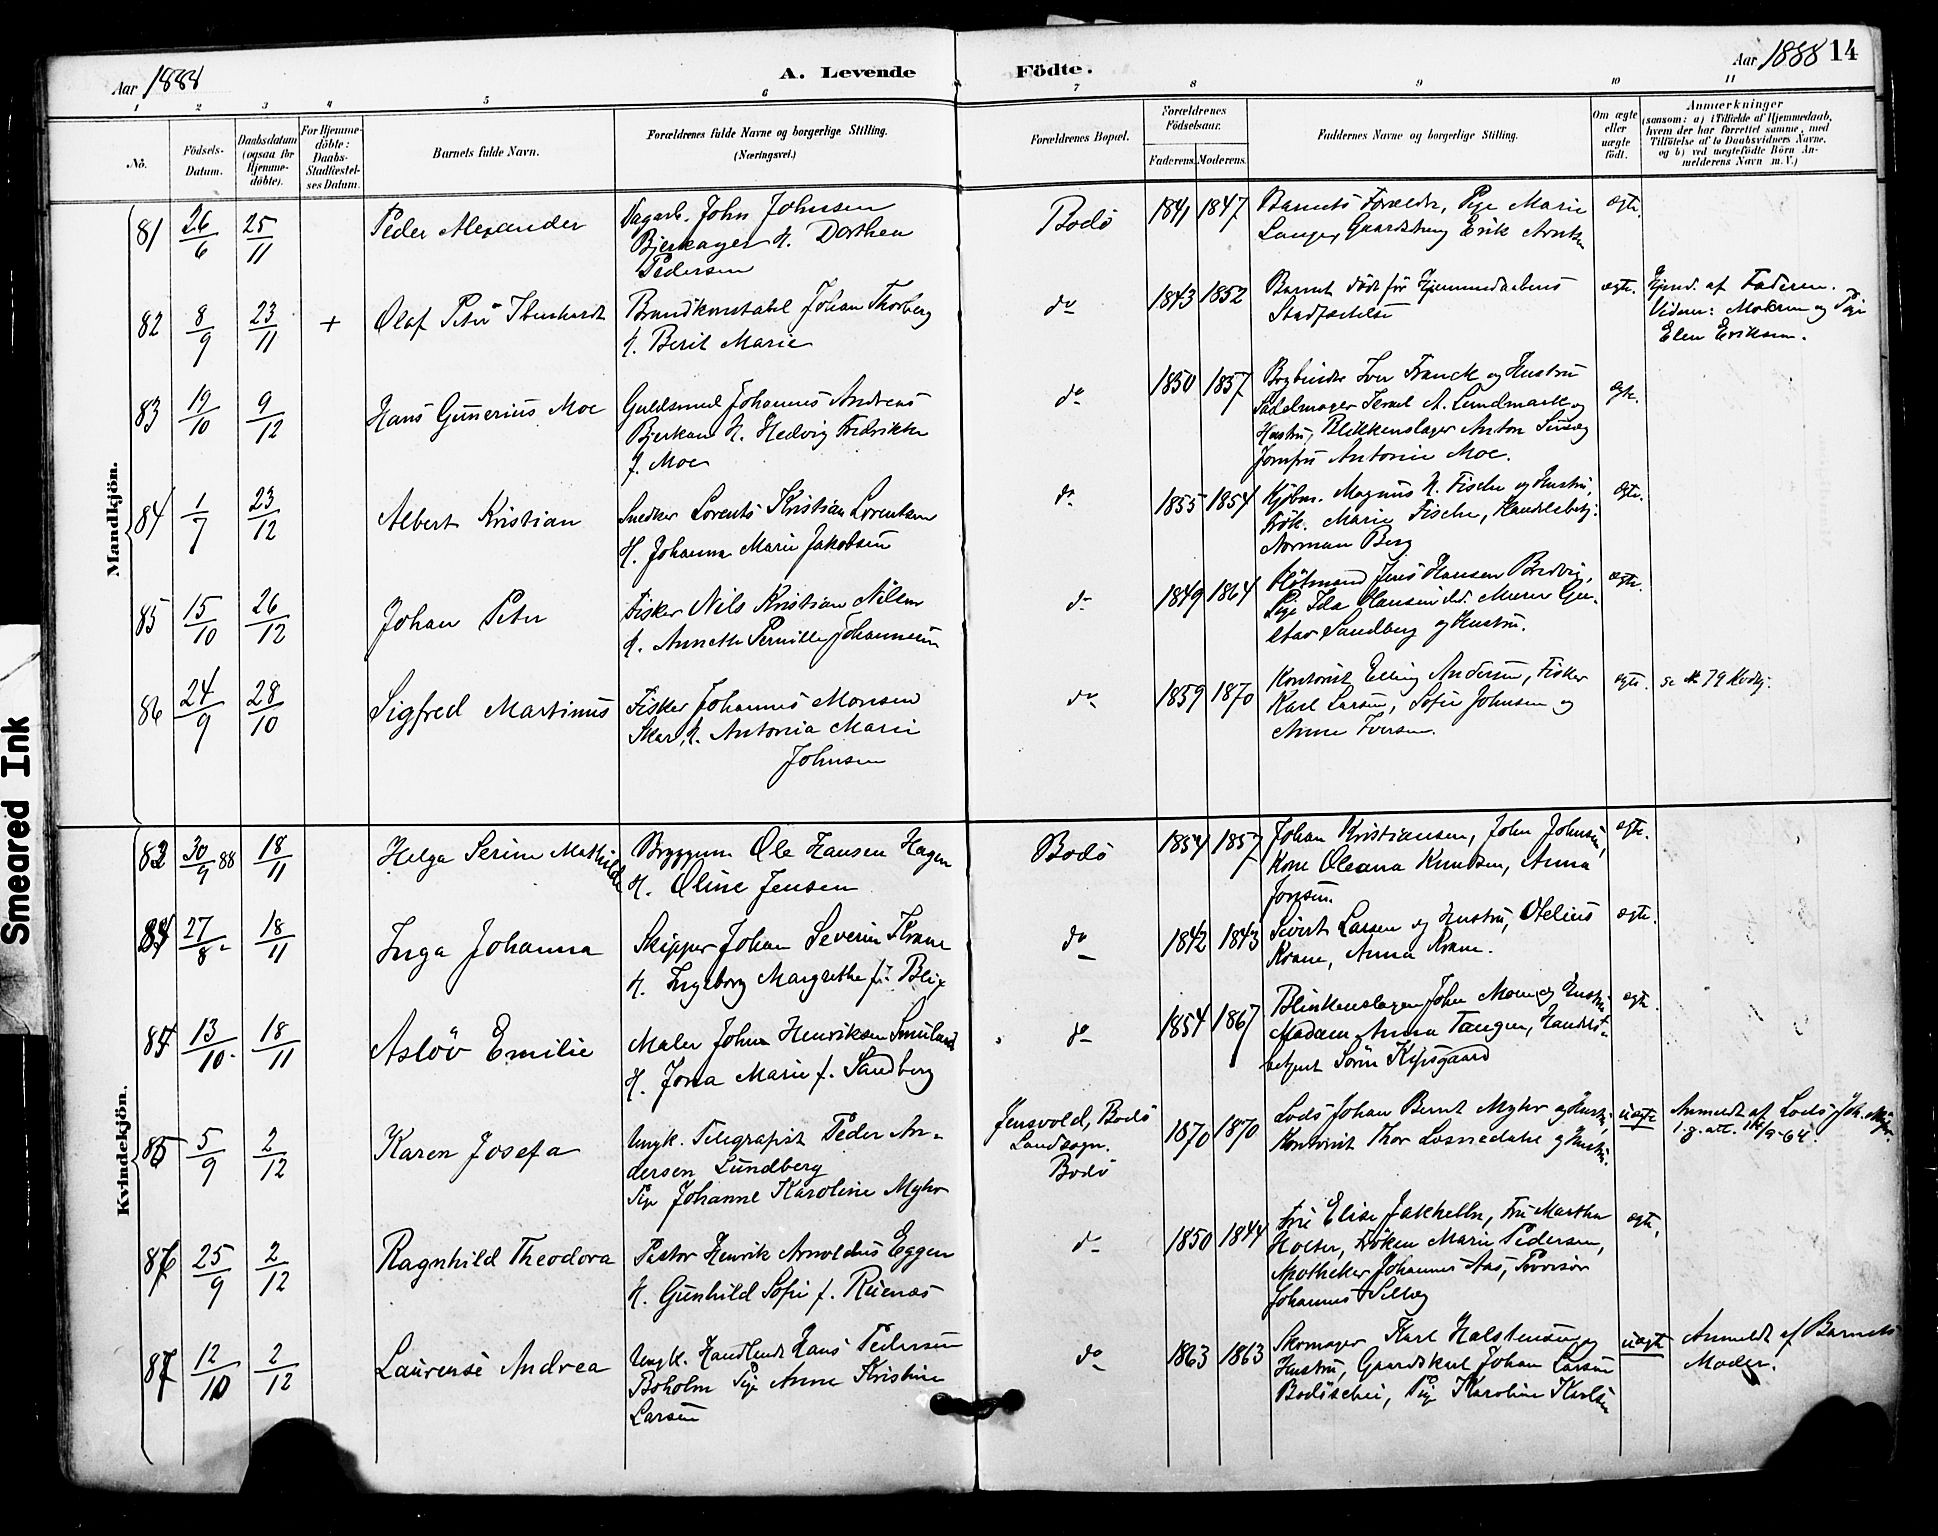 Aar 1888
A. Levende Födte.
Aar 1888 14
1 2 3 4 5 6 7 8 9 10 11
No.
Födsels-Datum.
Daabsdatum (ogsaa for Hjemme-döbte).
For Hjemme-döbte: Daabs-Stadfæstel-ses Datum.
Barnets fulde Navn.
Forældrenes fulde Navne og borgerlige Stilling. (Næringsvei.)
Forældrenes Bopæl.
Forældrenes Födselsaar.
Faderens. Moderens.
Faddernes Navne og borgerlige Stilling.
Om ægte eller uægte födt.
Anmærkninger
(saasom: a) i Tilfælde af Hjemmedaab, hvem der har forrettet samme, med Tilföielse af to Daabsvidners Navne, og b) ved uægtefödte Börn An-melderens Navn m. V.)
Mandkjön.
81 26/6 25/11 Peder Alexander
Dagarb. John Johnsen
Bjerkager H. Dorthea
Pedersen
Bodö 1841 1847
Barnets Forældre, Pige Marie
Lange, Gaardsdreng Erik
ægte.
82 8/9 23/11 + Olaf Peter
Brandkonstabel Johan Thorberg
H. Berit Marie
do 1843 1852
Barnet död för Hjemmedaabens
Stadfæstelse
ægte.
Hjemd. af Faderen.
Vidner: Moderen og Pige
Elen Eriksen.
83 19/10 9/12 Hans Gunerius Moe
Guldsmed Johannes Andreas
Bjerkan H. Hedvig Fredrikke
f. Moe
do 1850 1857
Bogbinder Iver Franck og Hustru
Sadelmager A. Lundmark og
Hustru, Blikkenslager Anton
Jomfru Antonie Moe.
ægte.
84 1/7 23/12 Albert Kristian
Snedker Lorents Kristian Lorentsen
H. Johanna Marie Jakobsen
do 1855 1854
Kjöbm. Magnus N. Fische og Hustru,
Frök. Marie Fische, Handelsbetj.
Norman Berg
ægte.
85 15/10 26/12 Johan Peter
Fisker Nils Kristian Nilsen
H. Annette Pernille Johannesen
do 1849 1864
Jens Hansen Bredvig,
Pige Ida Hansen Murer Gu-
stav Sandberg og Hustru.
ægte.
86 24/9 28/10 Sigfred Martinus
Fisker Johannes Monsen
Skar, H. Antonia Marie
Johnsen
do 1859 1870
Kontorist Elling Andersen, Fisker
Karl Larsen, Sofie Johnsen og
Anne Iversen.
ægte. se No 79 Kvdkj.
Kvindekjön.
82 30/9 88 18/11 Helga Serine Mathilde
Ole Hansen Hagen
H. Oline Jensen
Bodö 1854 1857
Johan Kristiansen, John Johnsen,
Kone Oleana Knudsen, Anna
Jonsen.
ægte.
27/8 18/11 Inga Johanna
Skipper Johan Severin Krane
H. Ingeborg Margrethe f. Blix
do 1842 1843
Sivert Larsen og Hustru, Otelius
Krane, Anna Krane.
ægte.
84 13/10 18/11 Aslöv Emilie
Maler Johan Henriksen
H. Jona Marie f. Sandberg
do 1854 1867
Blikkenslager John Moen og Hustru
Madam Anna Tangen, Handels-
betjent Sörin
ægte.
85 5/9 2/12 Karen Josefa
Ungk. Telegrafist Peder An-
dersen Lundberg
Pige Johanne Karoline Myhr
Jensvold, Bodö
Landsogn.
Bodö
1870 1870
Lods Johan Bernt Myhr og Hustru,
Kontorist Thor Losnedahl og Hustru.
uægte
Anmeldt af Lods Joh. Myhr.
86 25/9 2/12 Ragnhild Theodora
Pastor Henrik Arnoldus Eggen
H. Gunhild Sofie f. Ruenæs
do 1850 1844
Fru Elise Jakhelln, Fru Martha
Holter, Fröken Marie Pedersen,
Apotheker Johannes Aas, Provisor
Johannes Selbæg
ægte,
87 12/10 2/12 Laurense Andrea
Ungk. Handlende Hans Pedersen
Boholm Pige Anne Kristine
Larsen
do 1863 1863
Skomager Karl Halstensen og
Hustru, Gaardskarl Johan Larsen
Bodösjöen, Pige Karoline Karlsen
uægte
Anmeldt af Barnets
Moder.
Smeared Ink